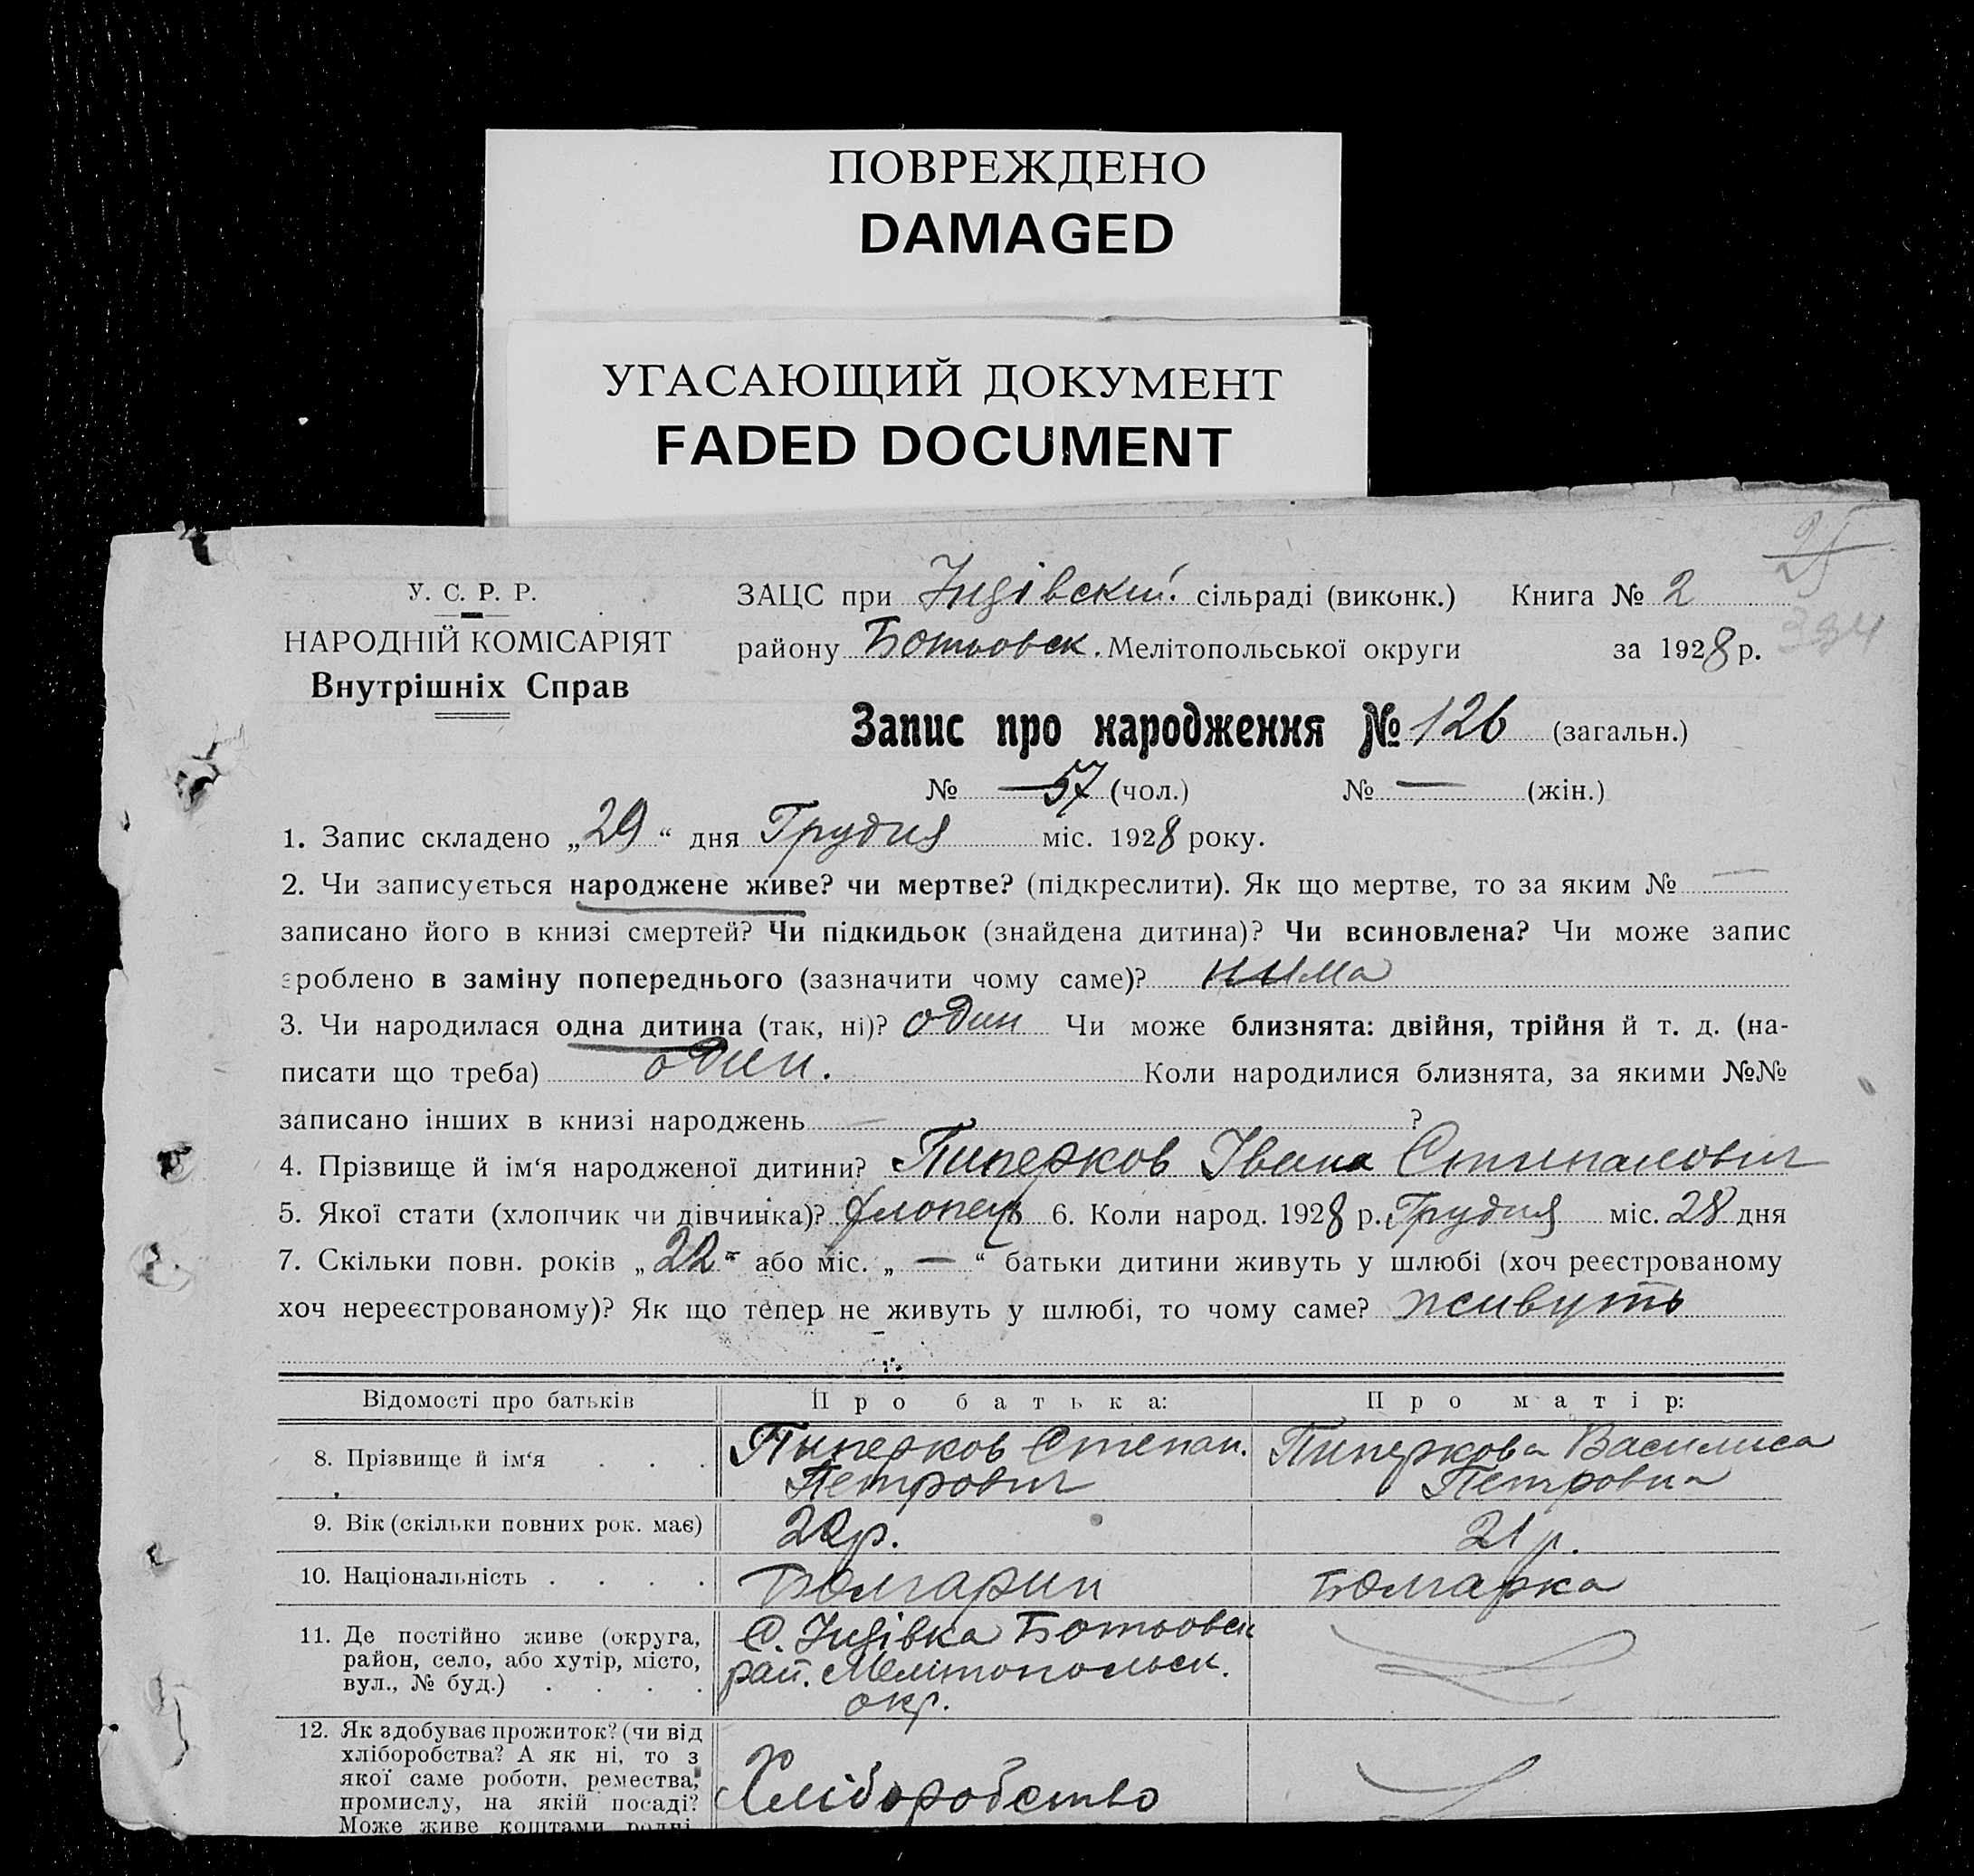 ПОВРЕЖДЕНО
DAMAGED
УГАСАЮЩИЙ ДОКУМЕНТ
FADED DOCUMENT
У. С. Р. Р.
НАРОДНІЙ КОМІСАРІЯТ
Внутрішніх Справ
ЗАЦС при сільраді (виконк.) Книга № 2
району Ботьовск. Мелітопольської округи за 1928 р.
Запис про народження № 126 (загальн.)
№ 57 (чол.) № — (жін.)
1. Запис складено „29“ дня Грудня міс. 1928 року.
2. Чи записується народжене живе? чи мертве? (підкреслити). Як що мертве, то за яким № —
записано його в книзі смертей? Чи підкидьок (знайдена дитина)? Чи всиновлена? Чи може запис
зроблено в заміну попереднього (зазначити чому саме)? нима
3. Чи народилася одна дитина (так, ні)? один Чи може близнята: двійня, трійня й т. д. (на-
писати що треба) один. Коли народилися близнята, за якими №№
записано інших в книзі народжень — ?
4. Прізвище й ім‘я народженої дитини? Пиперков Івана Стипанович
5. Якої стати (хлопчик чи дівчинка)? хлопець 6. Коли народ. 1928 р. Грудня міс. 28 дня
7. Скільки повн. років „22“ або міс. „ — “ батьки дитини живуть у шлюбі (хоч реєстрованому
хоч нереєстрованому)? Як що тепер не живуть у шлюбі, то чому саме? живуть
Відомості про батьків Про батька: Про матір:
8. Прізвище й ім‘я . . . Пиперков Степан. Петрович Пиперкова Василиса Петровна
9. Вік (скільки повних рок. має) 22р. 21 р.
10. Національність . . . . Болгарин Болгарка
11. Де постійно живе (округа,
район, село, або хутір, місто,
вул., № буд.) . . . .
С. Ботьовск
рай. Мелітопольск.
окр.
12. Як здобуває прожиток? (чи від
хліборобства? А як ні, то з
якої саме роботи, ремества,
промислу, на якій посаді?
Може живе коштами родні
Хліборобство